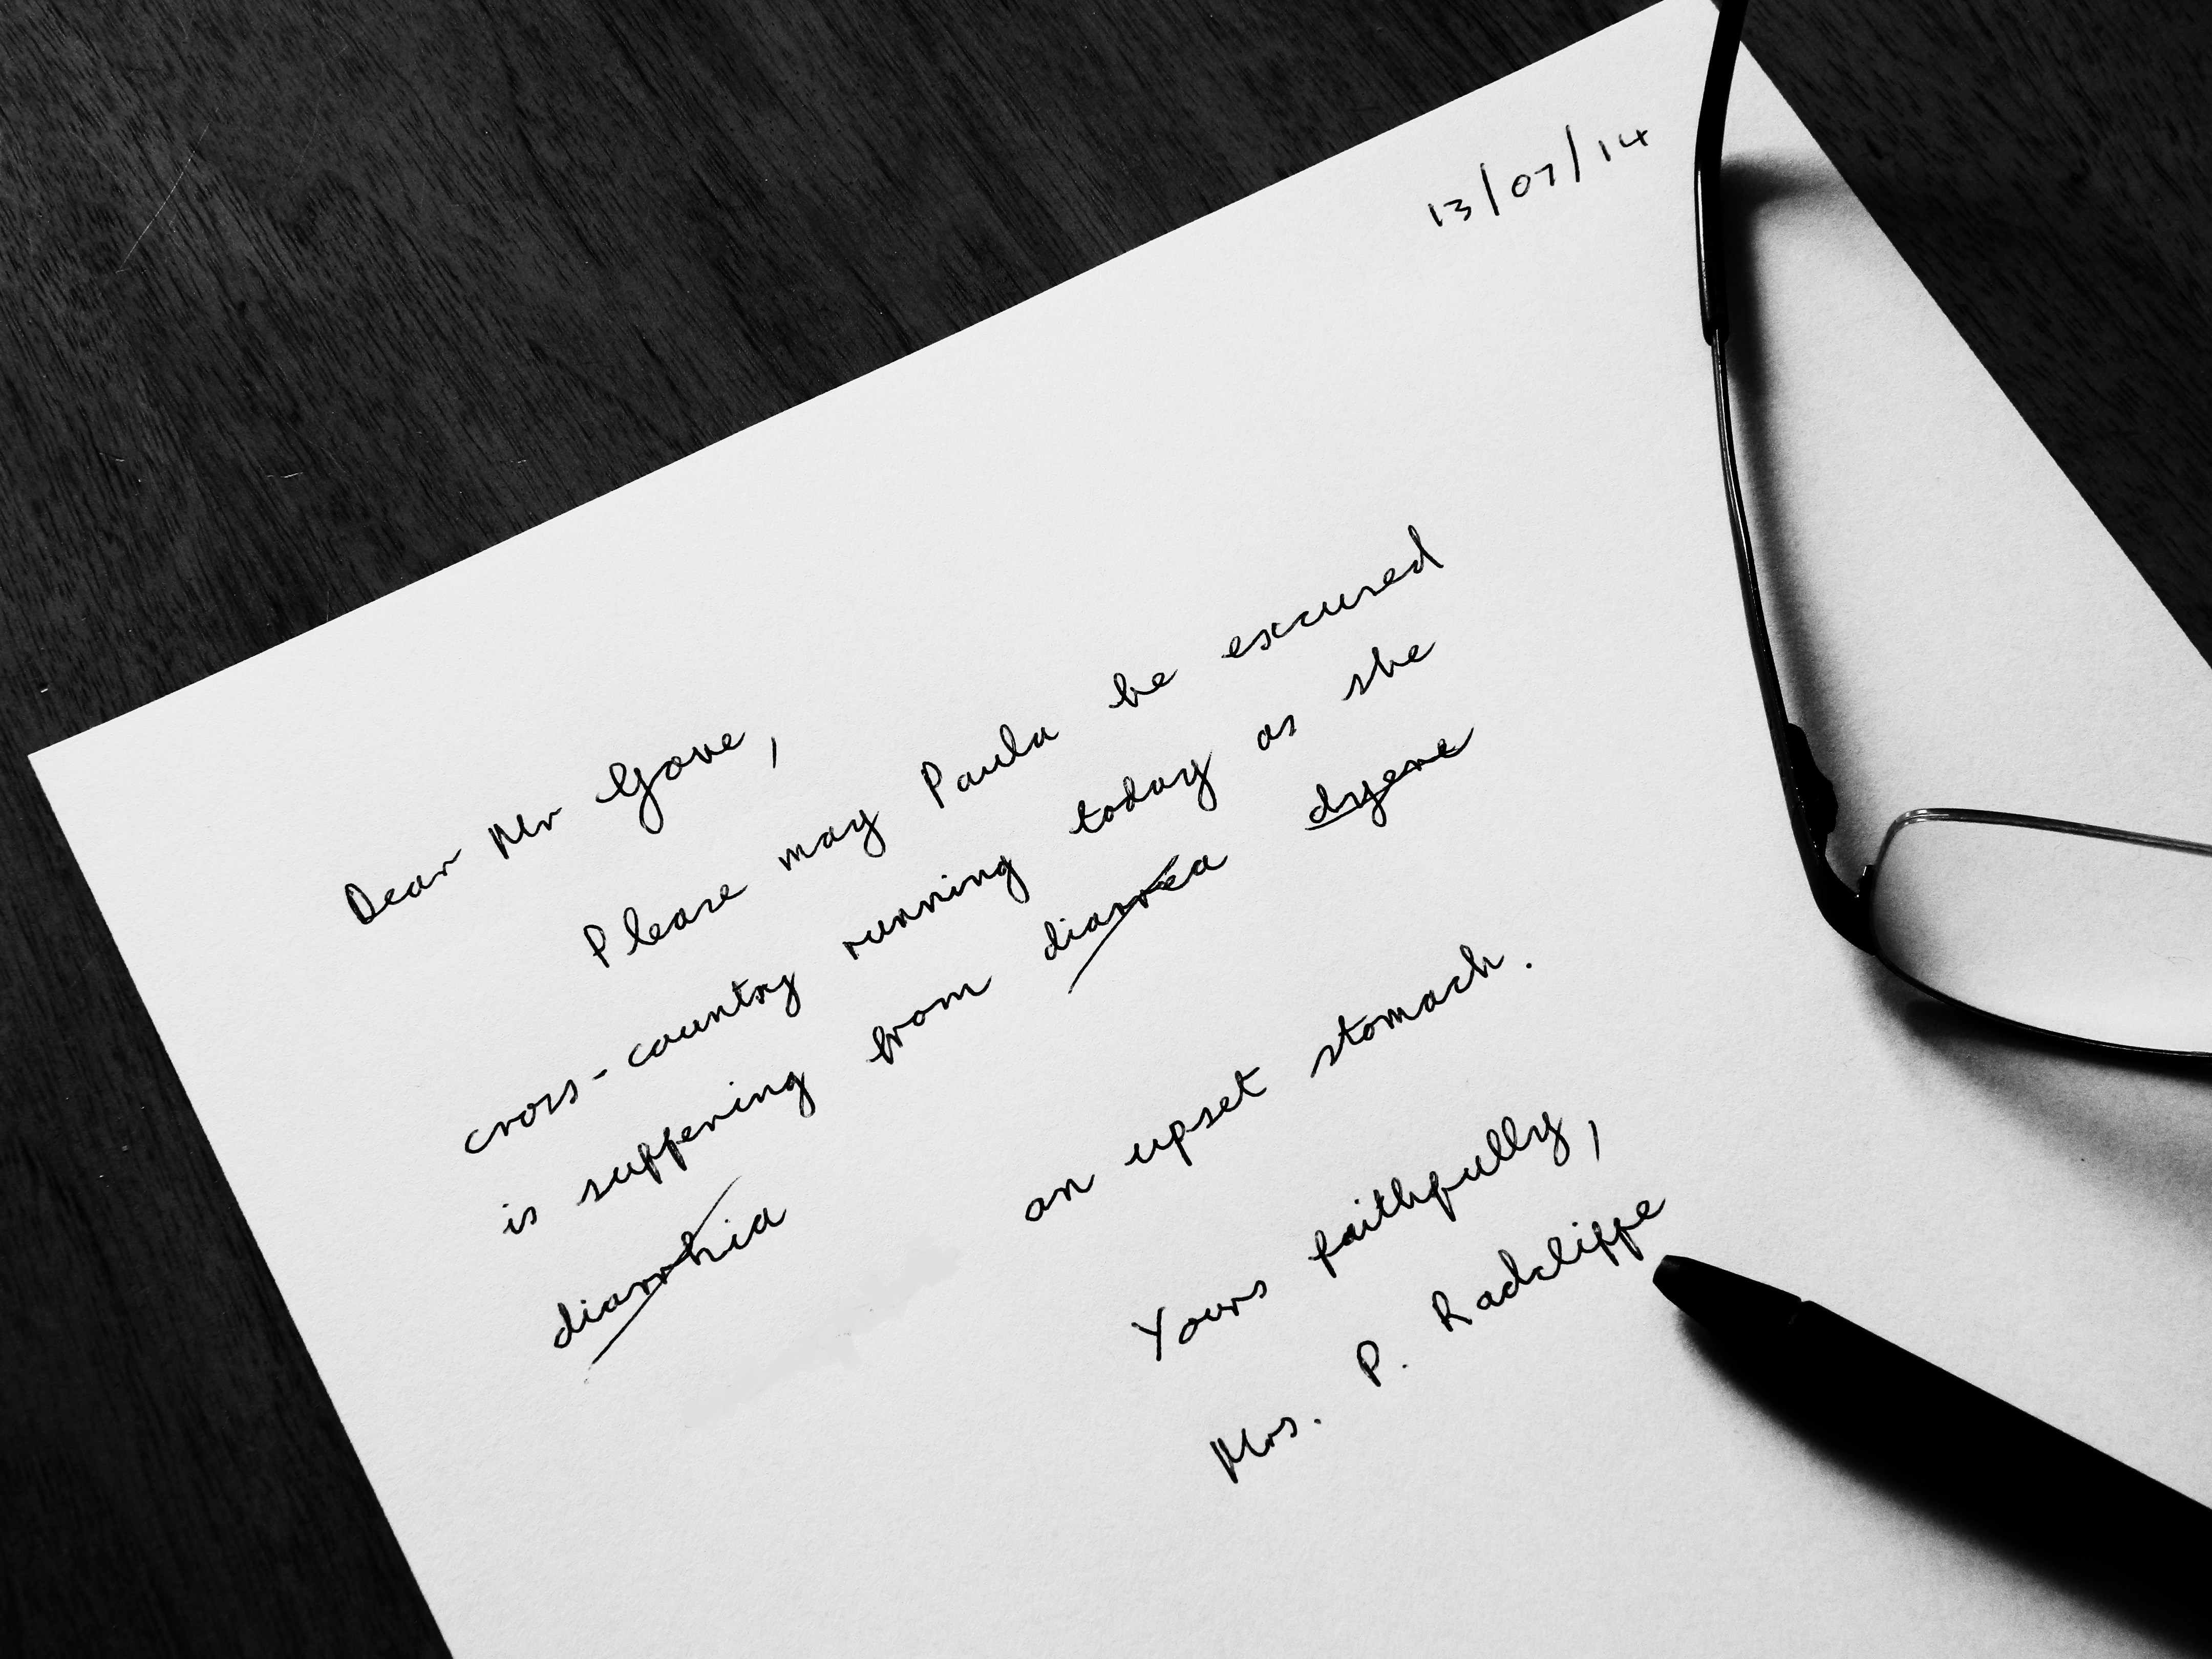 13/07/14
Dear Mr Gove,
Please may Paula be excused
cross-country running today as she
is suffering from diarrea dyere
diarrhia an upset stomach.
Yours faithfully,
Mrs. P. Radcliffe